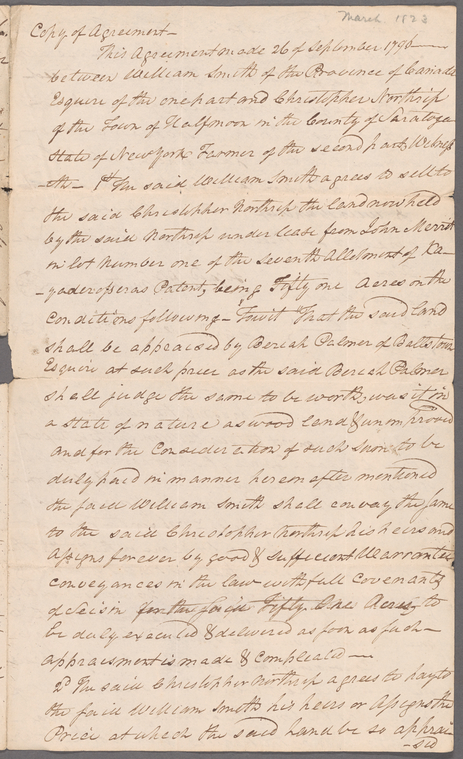 March 1828
Copy of Agreement—
This Agreement made 26 of September 1796—
between William Smith of the Province of Canada
Esquire of the one part and Christopher Northrip
of the Town of Halfmoon in the County of Saratoga
State of New York Farmer of the second part Witness
-eth— 1st The said William Smith agrees to sell to
the said Christopher Northrip the land now held
by the said Northrip under lease from John Merrit
in lot Number one of the Seventh Allotment of Ka-
-yaderosseras Patent, being Fifty one Acres on the
Conditions following— Towit That the said Land
shall be appraised by Beriah Palmer of Ballstown
Esquire at such price as the said Beriah Palmer
shall judge the same to be worth, was it in
a state of nature as wood land & unimproved
and for the Consideration of such sum to be
duly paid in manner herein after mentioned
the said William Smith shall convay the same
to the said Christopher Northrip his heirs and
Assigns forever by good & sufficient Warrantee
conveyances in the law with full Covenants
of Seisin for the said Fifty One Acres, to
be duly executed & delivered as soon as such—
appraisment is made & compleated—
2d The said Christopher Northrip agrees to pay to
the said William Smith his heirs or Assigns the
Price at which the said Land be so apprai
-sed